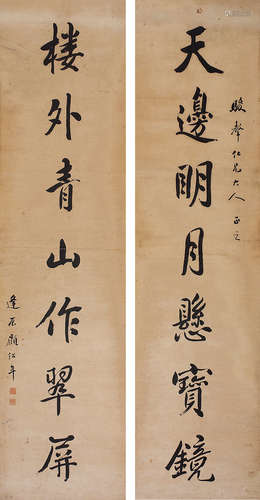 天邊明月懸寶鏡
駿聲仁兄大人正之
楼外青山作翠屏
逢辰顧紹年